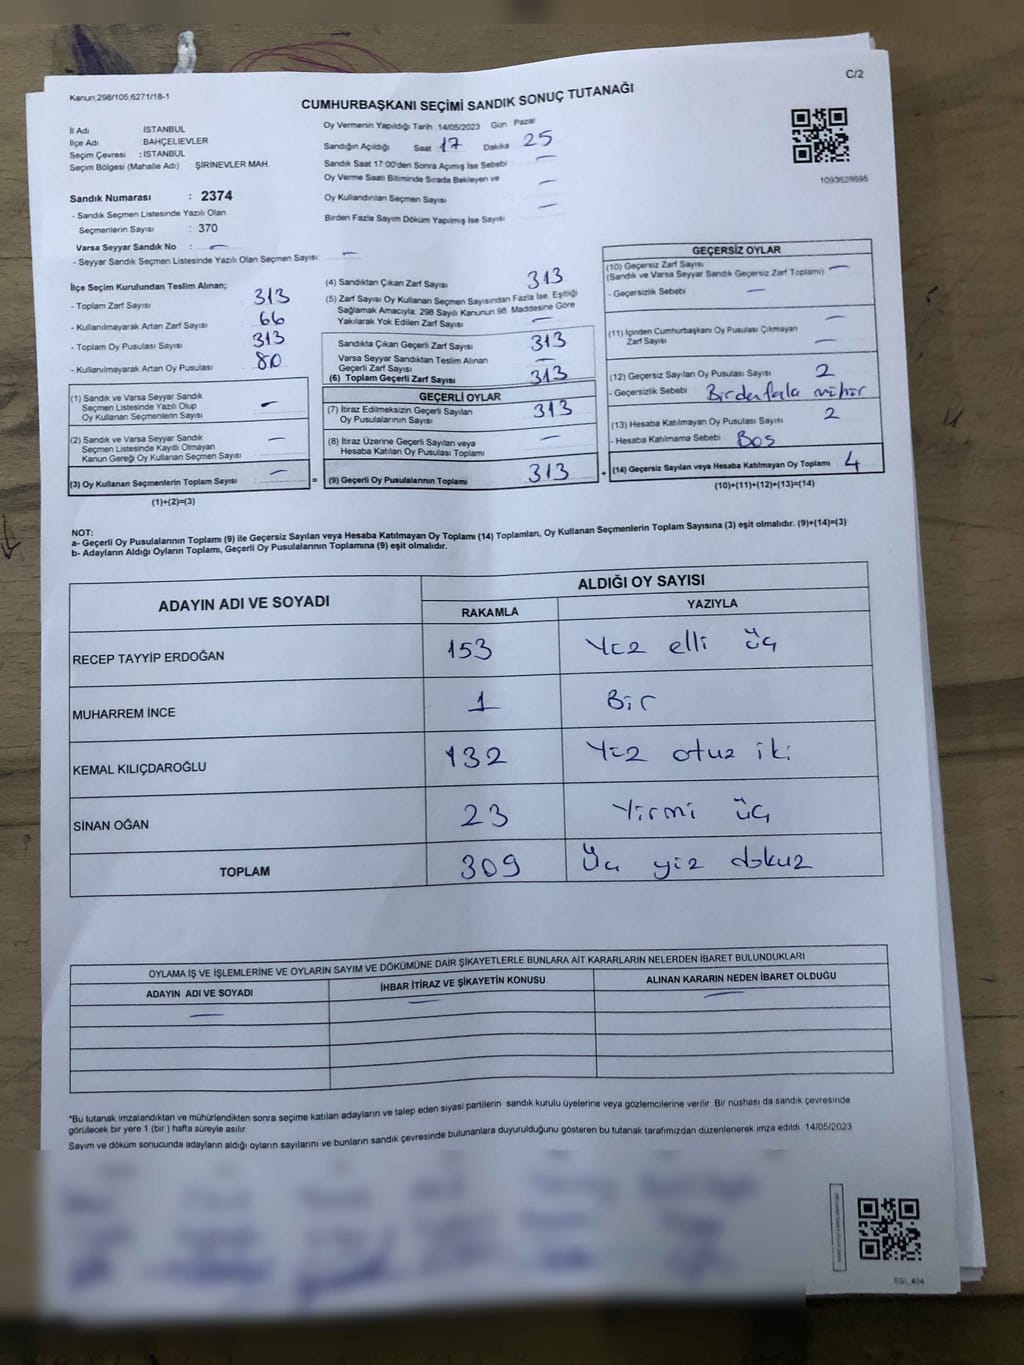 Kanun;298/105;6271/18-1
C/2
CUMHURBAŞKANI SEÇİMİ SANDIK SONUÇ TUTANAĞI
İl Adı : İSTANBUL
İlçe Adı : BAHÇELİEVLER
Seçim Çevresi : İSTANBUL
Seçim Bölgesi (Mahalle Adı) : ŞİRİNEVLER MAH.
Sandık Numarası : 2374
- Sandık Seçmen Listesinde Yazılı Olan
Seçmenlerin Sayısı : 370
Varsa Seyyar Sandık No : —
- Seyyar Sandık Seçmen Listesinde Yazılı Olan Seçmen Sayısı: —
Oy Vermenin Yapıldığı Tarih 14/05/2023 Gün Pazar
Sandığın Açıldığı Saat 17 Dakika 25
Sandık Saat 17:00'den Sonra Açımış İse Sebebi —
Oy Verme Saati Bitiminde Sırada Bekleyen ve
Oy Kullandırılan Seçmen Sayısı —
Birden Fazla Sayım Döküm Yapılmış İse Sayısı —
1093628695
İlçe Seçim Kurulundan Teslim Alınan;
- Toplam Zarf Sayısı 313
- Kullanılmayarak Artan Zarf Sayısı 66
- Toplam Oy Pusulası Sayısı 313
- Kullanılmayarak Artan Oy Pusulası 80
(1) Sandık ve Varsa Seyyar Sandık
Seçmen Listesinde Yazılı Olup
Oy Kullanan Seçmenlerin Sayısı —
(2) Sandık ve Varsa Seyyar Sandık
Seçmen Listesinde Kayıtlı Olmayan
Kanun Gereği Oy Kullanan Seçmen Sayısı —
(3) Oy Kullanan Seçmenlerin Toplam Sayısı — =
(1)+(2)=(3)
(4) Sandıktan Çıkan Zarf Sayısı 313
(5) Zarf Sayısı Oy Kullanan Seçmen Sayısından Fazla İse, Eşitliği
Sağlamak Amacıyla; 298 Sayılı Kanunun 98. Maddesine Göre
Yakılarak Yok Edilen Zarf Sayısı —
Sandıkta Çıkan Geçerli Zarf Sayısı 313
Varsa Seyyar Sandıktan Teslim Alınan
Geçerli Zarf Sayısı —
(6) Toplam Geçerli Zarf Sayısı 313
GEÇERLİ OYLAR
(7) İtiraz Edilmeksizin Geçerli Sayılan
Oy Pusulalarının Sayısı 313
(8) İtiraz Üzerine Geçerli Sayılan veya
Hesaba Katılan Oy Pusulası Toplamı —
(9) Geçerli Oy Pusulalarının Toplamı 313 +
GEÇERSİZ OYLAR
(10) Geçersiz Zarf Sayısı
(Sandık ve Varsa Seyyar Sandık Geçersiz Zarf Toplamı) —
- Geçersizlik Sebebi : —
(11) İçinden Cumhurbaşkanı Oy Pusulası Çıkmayan
Zarf Sayısı —
(12) Geçersiz Sayılan Oy Pusulası Sayısı 2
- Geçersizlik Sebebi : Birden fazla mühür
(13) Hesaba Katılmayan Oy Pusulası Sayısı 2
- Hesaba Katılmama Sebebi : Boş
(14) Geçersiz Sayılan veya Hesaba Katılmayan Oy Toplamı 4
(10)+(11)+(12)+(13)=(14)
NOT:
a- Geçerli Oy Pusulalarının Toplamı (9) ile Geçersiz Sayılan veya Hesaba Katılmayan Oy Toplamı (14) Toplamları, Oy Kullanan Seçmenlerin Toplam Sayısına (3) eşit olmalıdır. (9)+(14)=(3)
b- Adayların Aldığı Oyların Toplamı, Geçerli Oy Pusulalarının Toplamına (9) eşit olmalıdır.
ADAYIN ADI VE SOYADI ALDIĞI OY SAYISI
RAKAMLA YAZIYLA
RECEP TAYYİP ERDOĞAN 153 Yüz elli üç
MUHARREM İNCE 1 Bir
KEMAL KILIÇDAROĞLU 132 Yüz otuz iki
SİNAN OĞAN 23 Yirmi üç
TOPLAM 309 Üç yüz dokuz
OYLAMA İŞ VE İŞLEMLERİNE VE OYLARIN SAYIM VE DÖKÜMÜNE DAİR ŞİKAYETLERLE BUNLARA AİT KARARLARIN NELERDEN İBARET BULUNDUKLARI
ADAYIN ADI VE SOYADI İHBAR İTİRAZ VE ŞİKAYETİN KONUSU ALINAN KARARIN NEDEN İBARET OLDUĞU
— — —
*Bu tutanak imzalandıktan ve mühürlendikten sonra seçime katılan adayların ve talep eden siyasi partilerin sandık kurulu üyelerine veya gözlemcilerine verilir. Bir nüshası da sandık çevresinde
görülecek bir yere 1 (bir) hafta süreyle asılır.
Sayım ve döküm sonucunda adayların aldığı oyların sayılarını ve bunların sandık çevresinde bulunanlara duyurulduğunu gösteren bu tutanak tarafımızdan düzenlenerek imza edildi. 14/05/2023